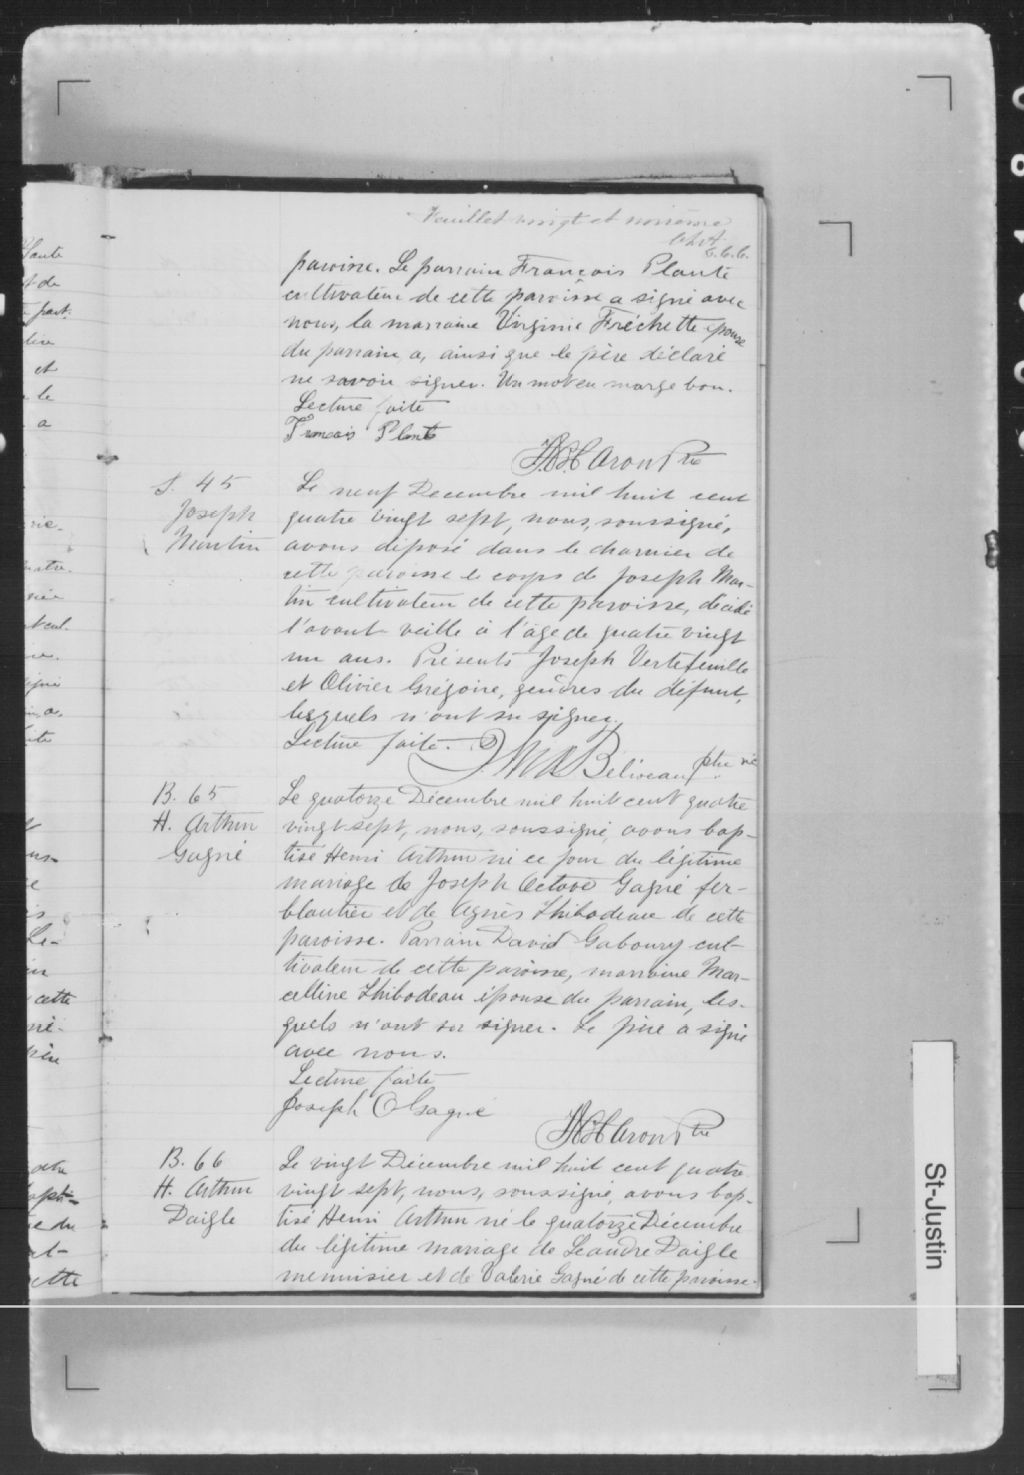 Feuillet vingt et neuvième
C.C.C.
paroisse. Le parrain François Plante
cultivateur de cette paroisse a signé avec
nous, la marraine Virginie Fréchette épouse
du parrain a, ainsi que le père déclaré
ne savoir signer. Un mot en marge bon.
Lecture faite
Francois Plante
Ptre
S. 45
Joseph
Martin
Le neuf Decembre mil huit cent
quatre vingt sept, nous, soussigné,
avons déposé dans le charnier de
cette paroisse le corps de Joseph Mar-
tin cultivateur de cette paroisse, décédé
l'avant veille à l'âge de quatre vingt
un ans. Présents Joseph Vertefeuille
et Olivier Grégoire, gendres du défunt,
lesquels n'ont su signer.
Lecture faite.
Beliveau ptre vic
B. 65
H. Arthur
Gagné
Le quatorze Décembre mil huit cent quatre
vingt sept, nous, soussigné, avons bap-
tisé Henri Arthur né ce jour du légitime
mariage de Joseph Octave Gagné fer-
blantier et de Agnès Thibodeau de cette
paroisse. Parrain David Gaboury cul-
tivateur de cette paroisse, marraine Mar-
celline Thibodeau épouse du parrain, les-
quels n'ont su signer. Le père a signé
avec nous.
Lecture faite
Joseph O Gagné
Ptre
B. 66
H. Arthur
Daigle
Le vingt Décembre mil huit cent quatre
vingt sept, nous, soussigné, avons bap-
tisé Henri Arthur né le quatorze Décembre
du légitime mariage de Leandre Daigle
menuisier et de Valérie Gagné de cette paroisse.
St-Justin